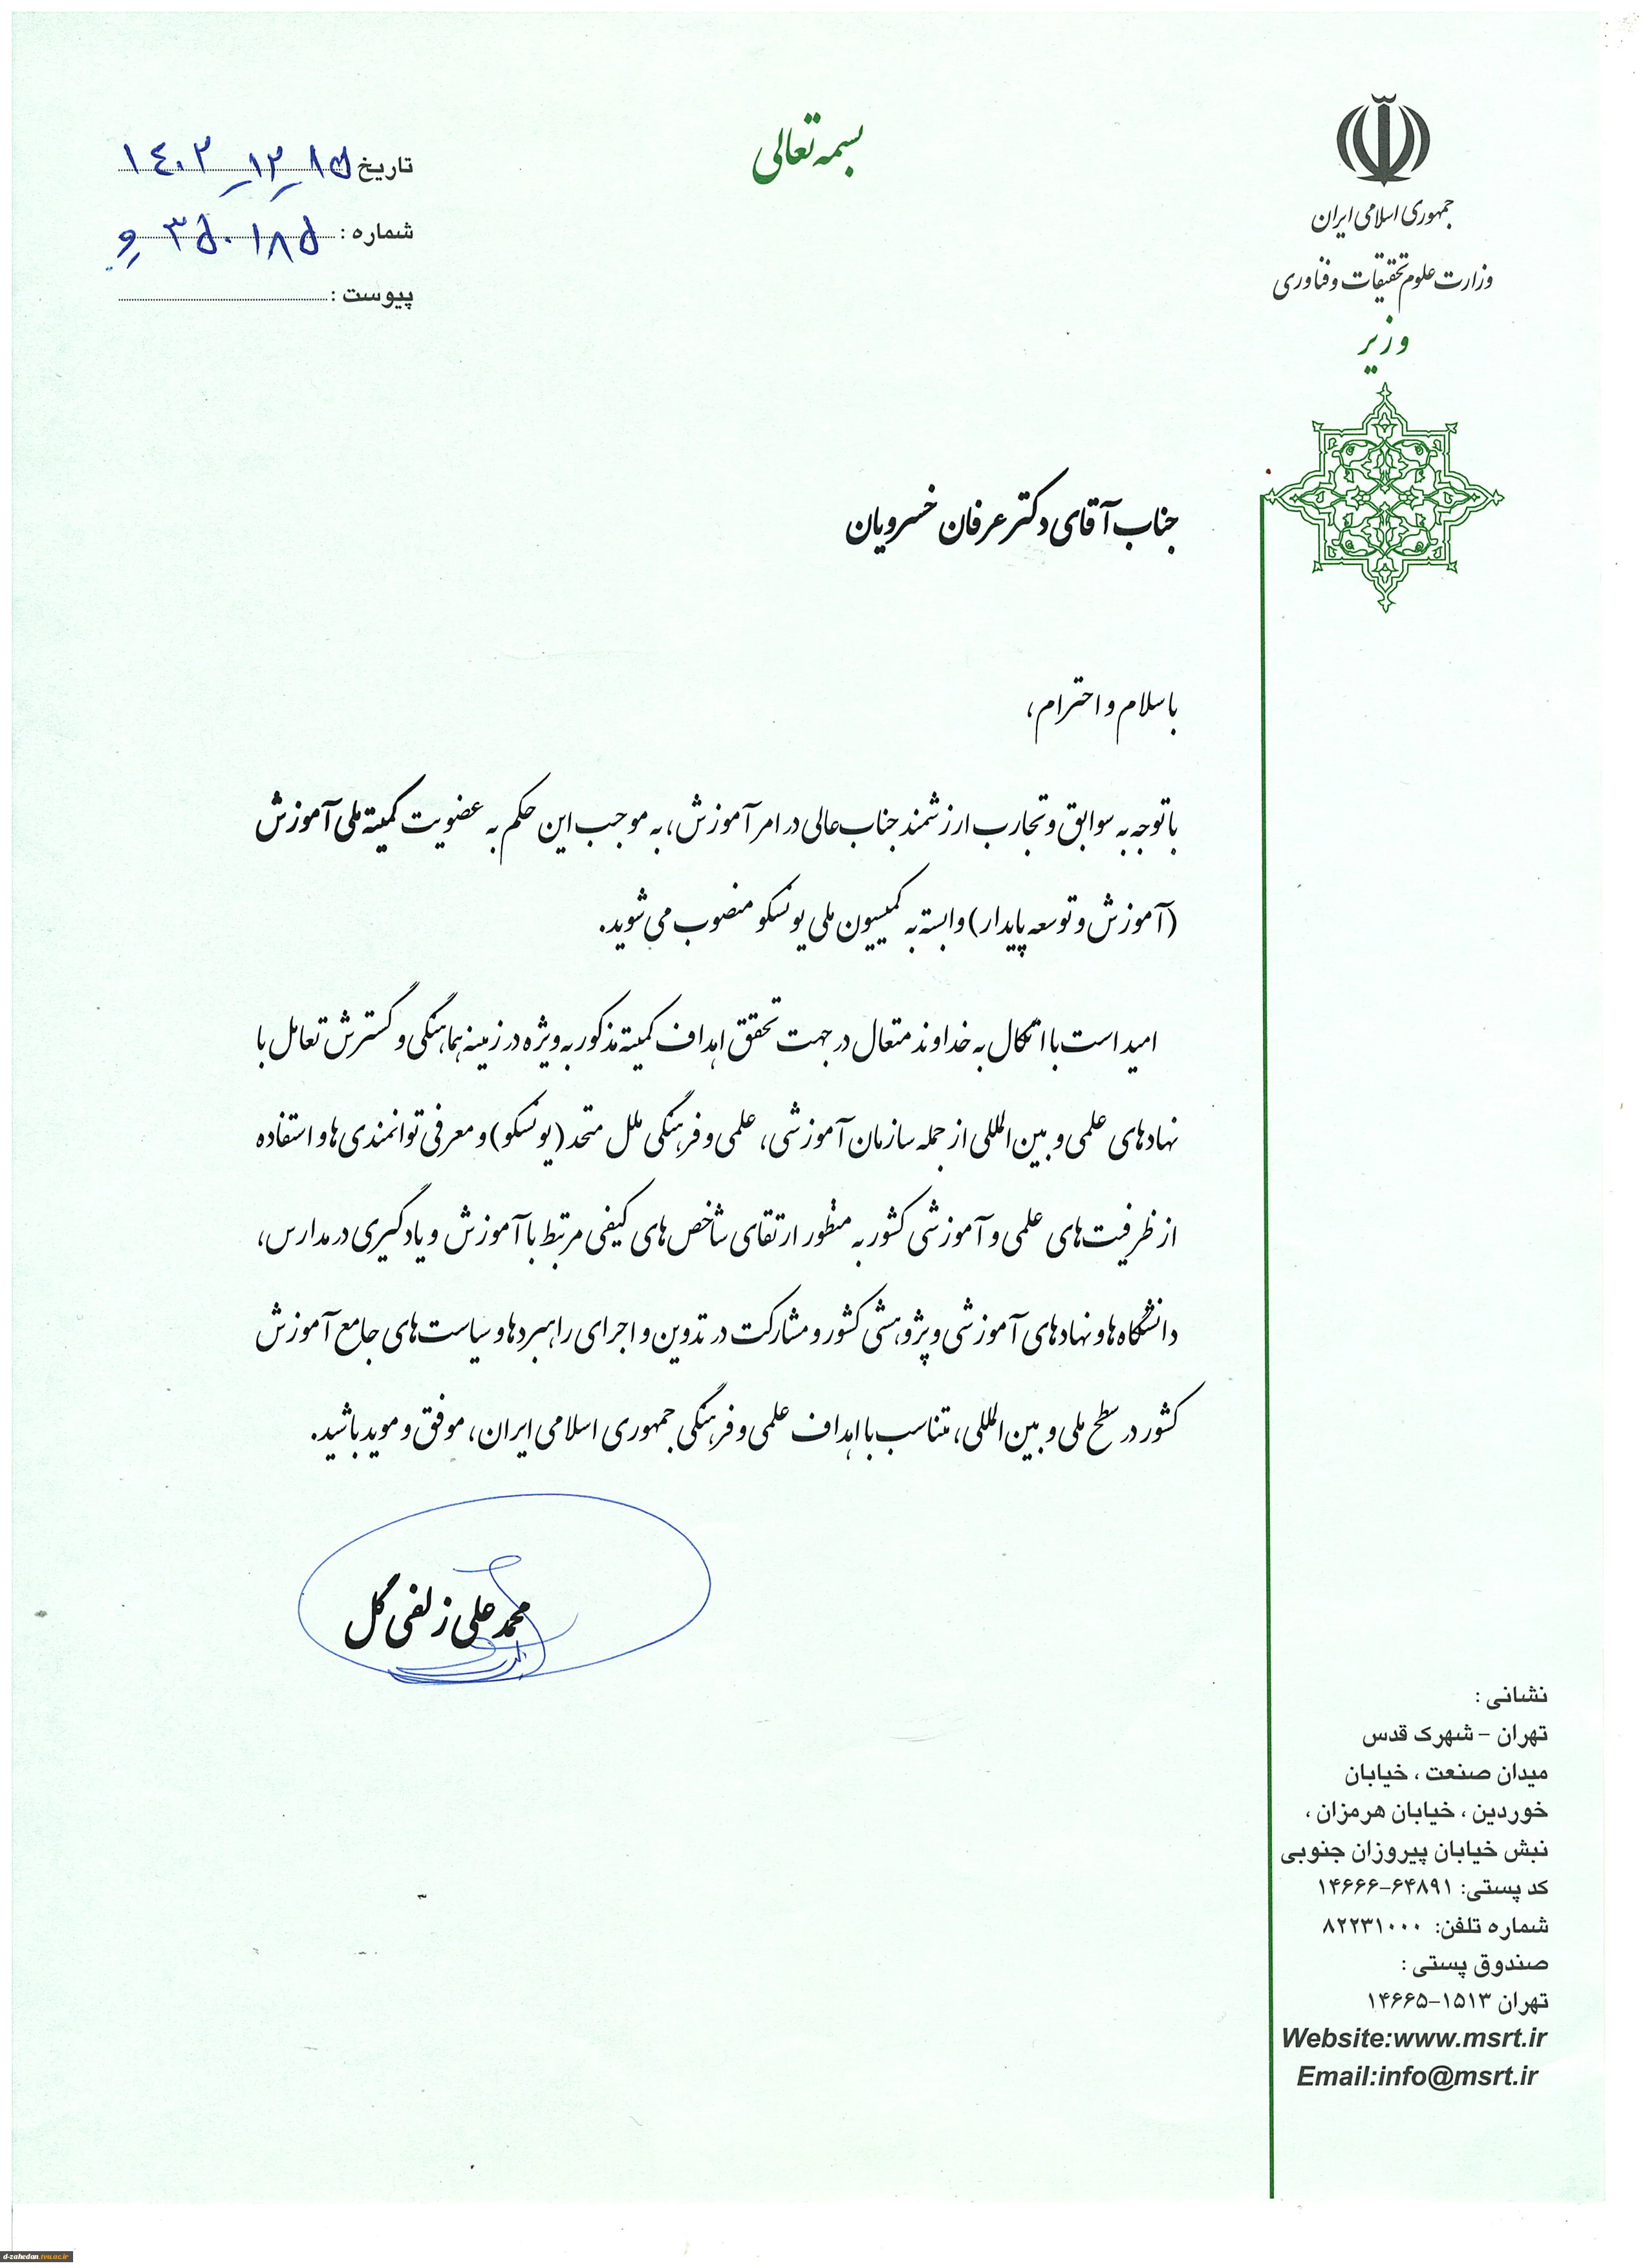 بسمه تعالی
جمهوری اسلامی ایران
وزارت علوم تحقیقات و فناوری
وزیر
تاریخ ۱۴۰۲-۱۲-۱۵
شماره : ۳۵۰۱۸۵ و
پیوست :
جناب آقای دکتر عرفان خسرویان
با سلام و احترام،
با توجه به سوابق و تجارب ارزشمند جناب‌عالی در امر آموزش، به موجب این حکم به عضویت کمیته ملی آموزش
(آموزش و توسعه پایدار) وابسته به کمیسیون ملی یونسکو منصوب می‌شوید.
امید است با اتکال به خداوند متعال در جهت تحقق اهداف کمیته مذکور به ویژه در زمینه هماهنگی و گسترش تعامل با
نهادهای علمی و بین‌المللی از جمله سازمان آموزشی، علمی و فرهنگی ملل متحد (یونسکو) و معرفی توانمندی‌ها و استفاده
از ظرفیت‌های علمی و آموزشی کشور به منظور ارتقای شاخص‌های کیفی مرتبط با آموزش و یادگیری در مدارس،
دانشگاه‌ها و نهادهای آموزشی و پژوهشی کشور و مشارکت در تدوین و اجرای راهبردها و سیاست‌های جامع آموزش
کشور در سطح ملی و بین‌المللی، متناسب با اهداف علمی و فرهنگی جمهوری اسلامی ایران، موفق و موید باشید.
محمدعلی زلفی گل
نشانی :
تهران - شهرک قدس
میدان صنعت ، خیابان
خوردین ، خیابان هرمزان ،
نبش خیابان پیروزان جنوبی
کد پستی: ۶۴۸۹۱-۱۴۶۶۶
شماره تلفن: ۸۲۲۳۱۰۰۰
صندوق پستی :
تهران ۱۵۱۳-۱۴۶۶۵
Website:www.msrt.ir
Email:info@msrt.ir
d-zahedan.tvu.ac.ir